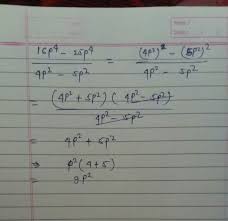 16p⁴ - 25p⁴ / 4p² - 5p² = (4p²)² - (5p²)² / 4p² - 5p²
= (4p² + 5p²) (4p² - 5p²) / 4p² - 5p²
= 4p² + 5p²
⇒ p² (4+5)
⇒ 9p²